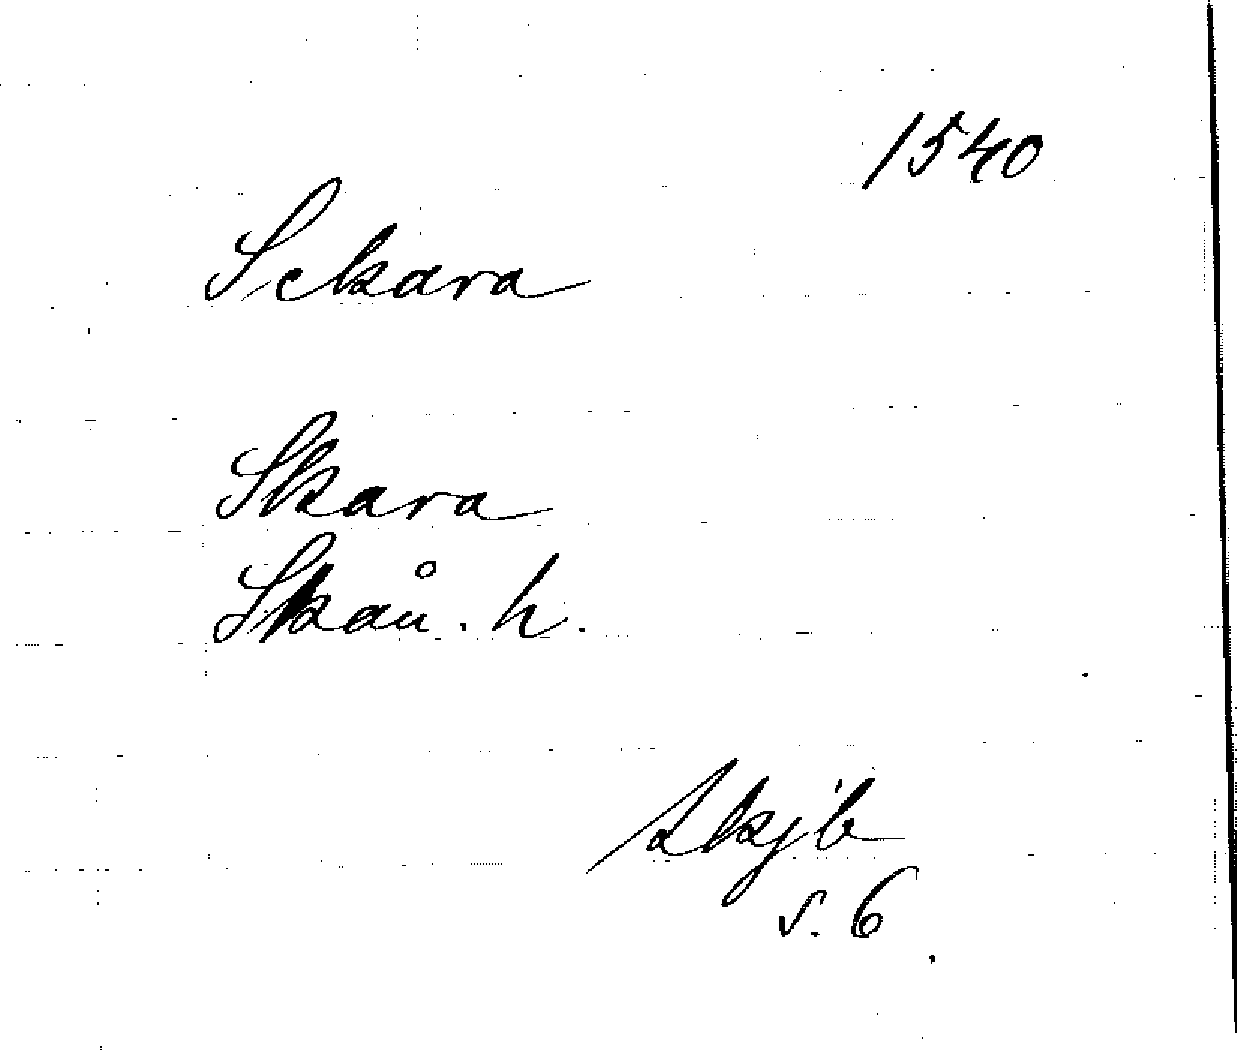 1540
Sckara
Skara
Skån. h.
Skjb
s. 6